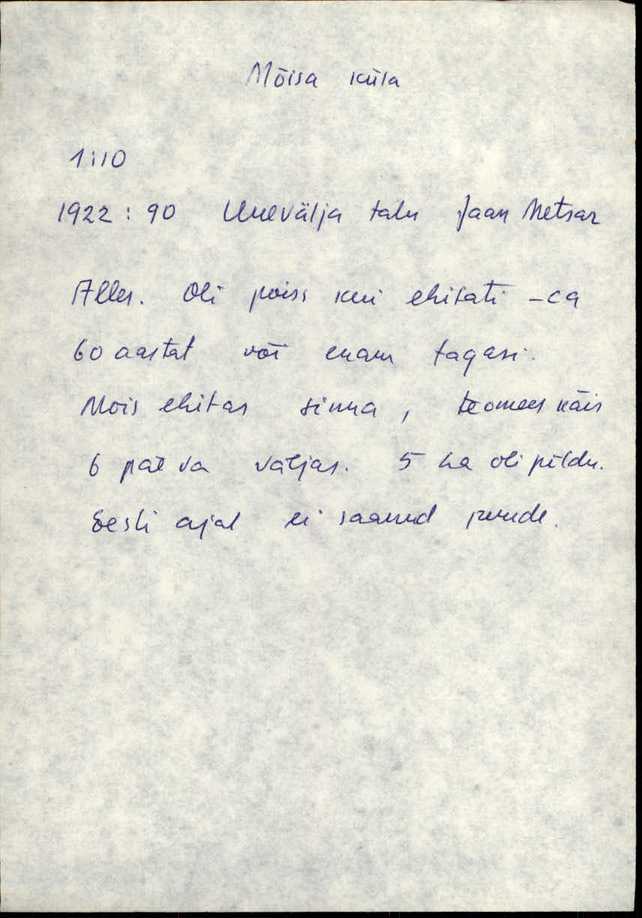 Mõisa küla
1:10
1922 : 90 Uuevälja talu Jaan Metsar
Aller. Oli poiss kui ehitati - ca
60 aastat või enam tagasi.
Mõis ehitas sinna, teomees käis
6 päeva väljas. 5 ha oli põldu.
Eesti ajal ei saanud juurde.